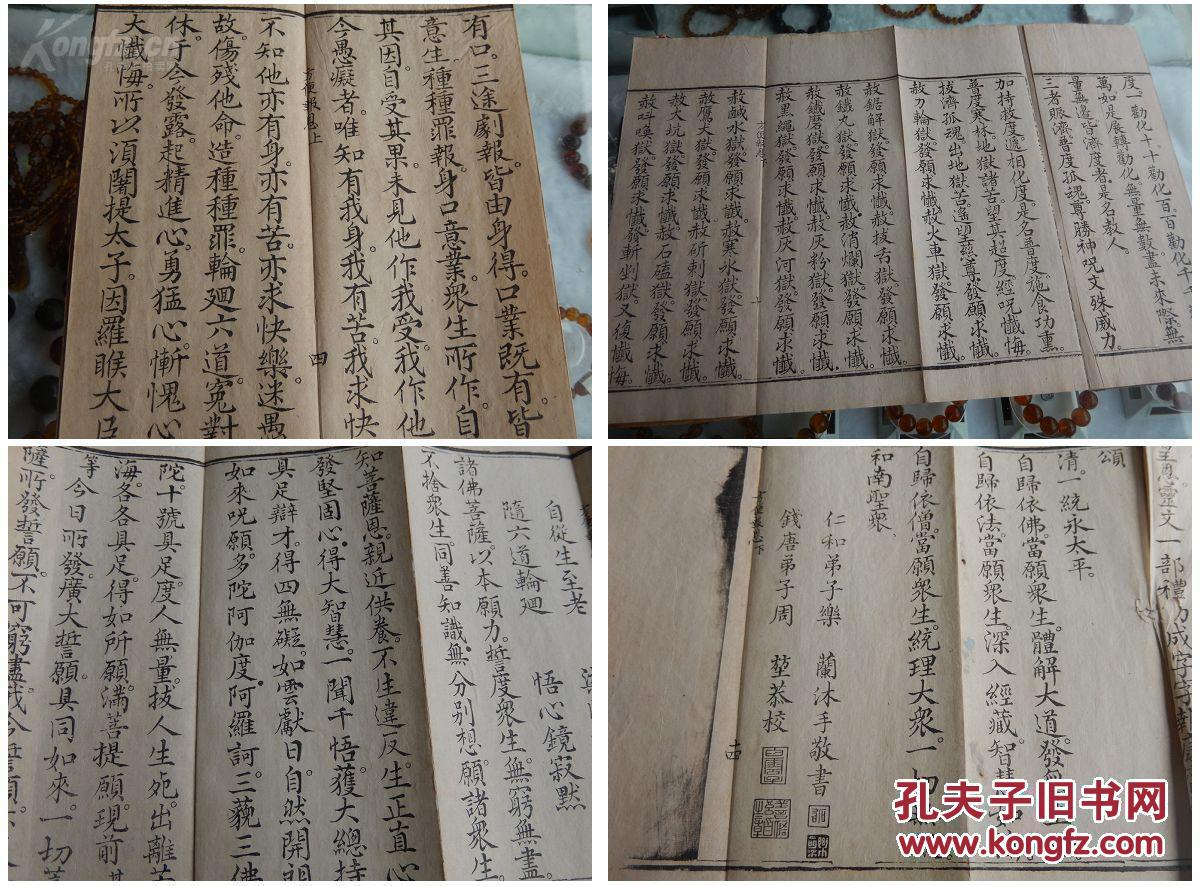 有口。三途劇報。皆由身得。口業既有。皆
意生種種罪報。身口意業。衆生所作。自
其因。自受其果。未見他作我受。我作他
今愚癡者。唯知有我身。我有苦。我求快
方便報恩上
四
不知他亦有身。亦有苦。亦求快樂。迷愚
故。傷殘他命。造種種罪。輪廻六道。冤對
休。于今發露。起精進心。勇猛心。慚愧心
大懺悔。所以須闡提太子。因羅睺大臣
度。一勸化十。十勸化百。百勸化千
萬。如是展轉勸化。無量無數。盡未來際。無
量無邊。皆濟度者。是名教人。
三者賑濟。普度孤魂。尊勝神咒。文殊威力。
加持救度。遞相化度。是名普度。施食功熏。
普度寒林。地獄諸苦。望其超度。經呪懺悔。
拔濟孤魂。出地獄苦。遙望慈尊。發願求懺。
赦刀輪獄。發願求懺。赦火車獄。發願求懺。
赦鋸解獄。發願求懺。赦拔舌獄。發願求懺。
赦鐵丸獄。發願求懺。赦消爛獄。發願求懺。
赦鐵磨獄。發願求懺。赦灰粉獄。發願求懺。
赦黑繩獄。發願求懺。赦灰河獄。發願求懺。
方便報恩下
赦鹹水獄。發願求懺。赦寒水獄。發願求懺。
赦鷹犬獄。發願求懺。赦斫刺獄。發願求懺。
赦火坑獄。發願求懺。赦石磕獄。發願求懺。
赦呌喚獄。發願求懺。發斬剉獄。又復懺悔。
自從生至老
隨六道輪廻
悟心鏡寂默
諸佛菩薩。以本願力。誓度衆生。無窮無盡。
不捨衆生。同善知識。無分别想。願諸衆生。
知菩薩恩。親近供養。不生違反。生正直心
發堅固心。得大智慧。一聞千悟。獲大總持
具足辯才。得四無礙。如雲獻日。自然開朗
如來呪願。多陀阿伽度。阿羅訶。三藐三佛
陀。十號具足。度人無量。拔人生死。出離苦
海。各各具足。得如所願。滿菩提願。現前
等今日所發廣大誓願。具同如來。一切菩
薩。所發誓願。不可窮盡。我今誓願
靈文一部禮
頌
清一統永太平。
自歸依佛。當願衆生。體解大道。發無
自歸依法。當願衆生。深入經藏。智慧如
自歸依僧。當願衆生。統理大衆。一切
和南聖衆。
仁和弟子樂 蘭沐手敬書
錢唐弟子周 堃恭校
方便報恩下
十四
孔夫子旧书网
www.kongfz.com